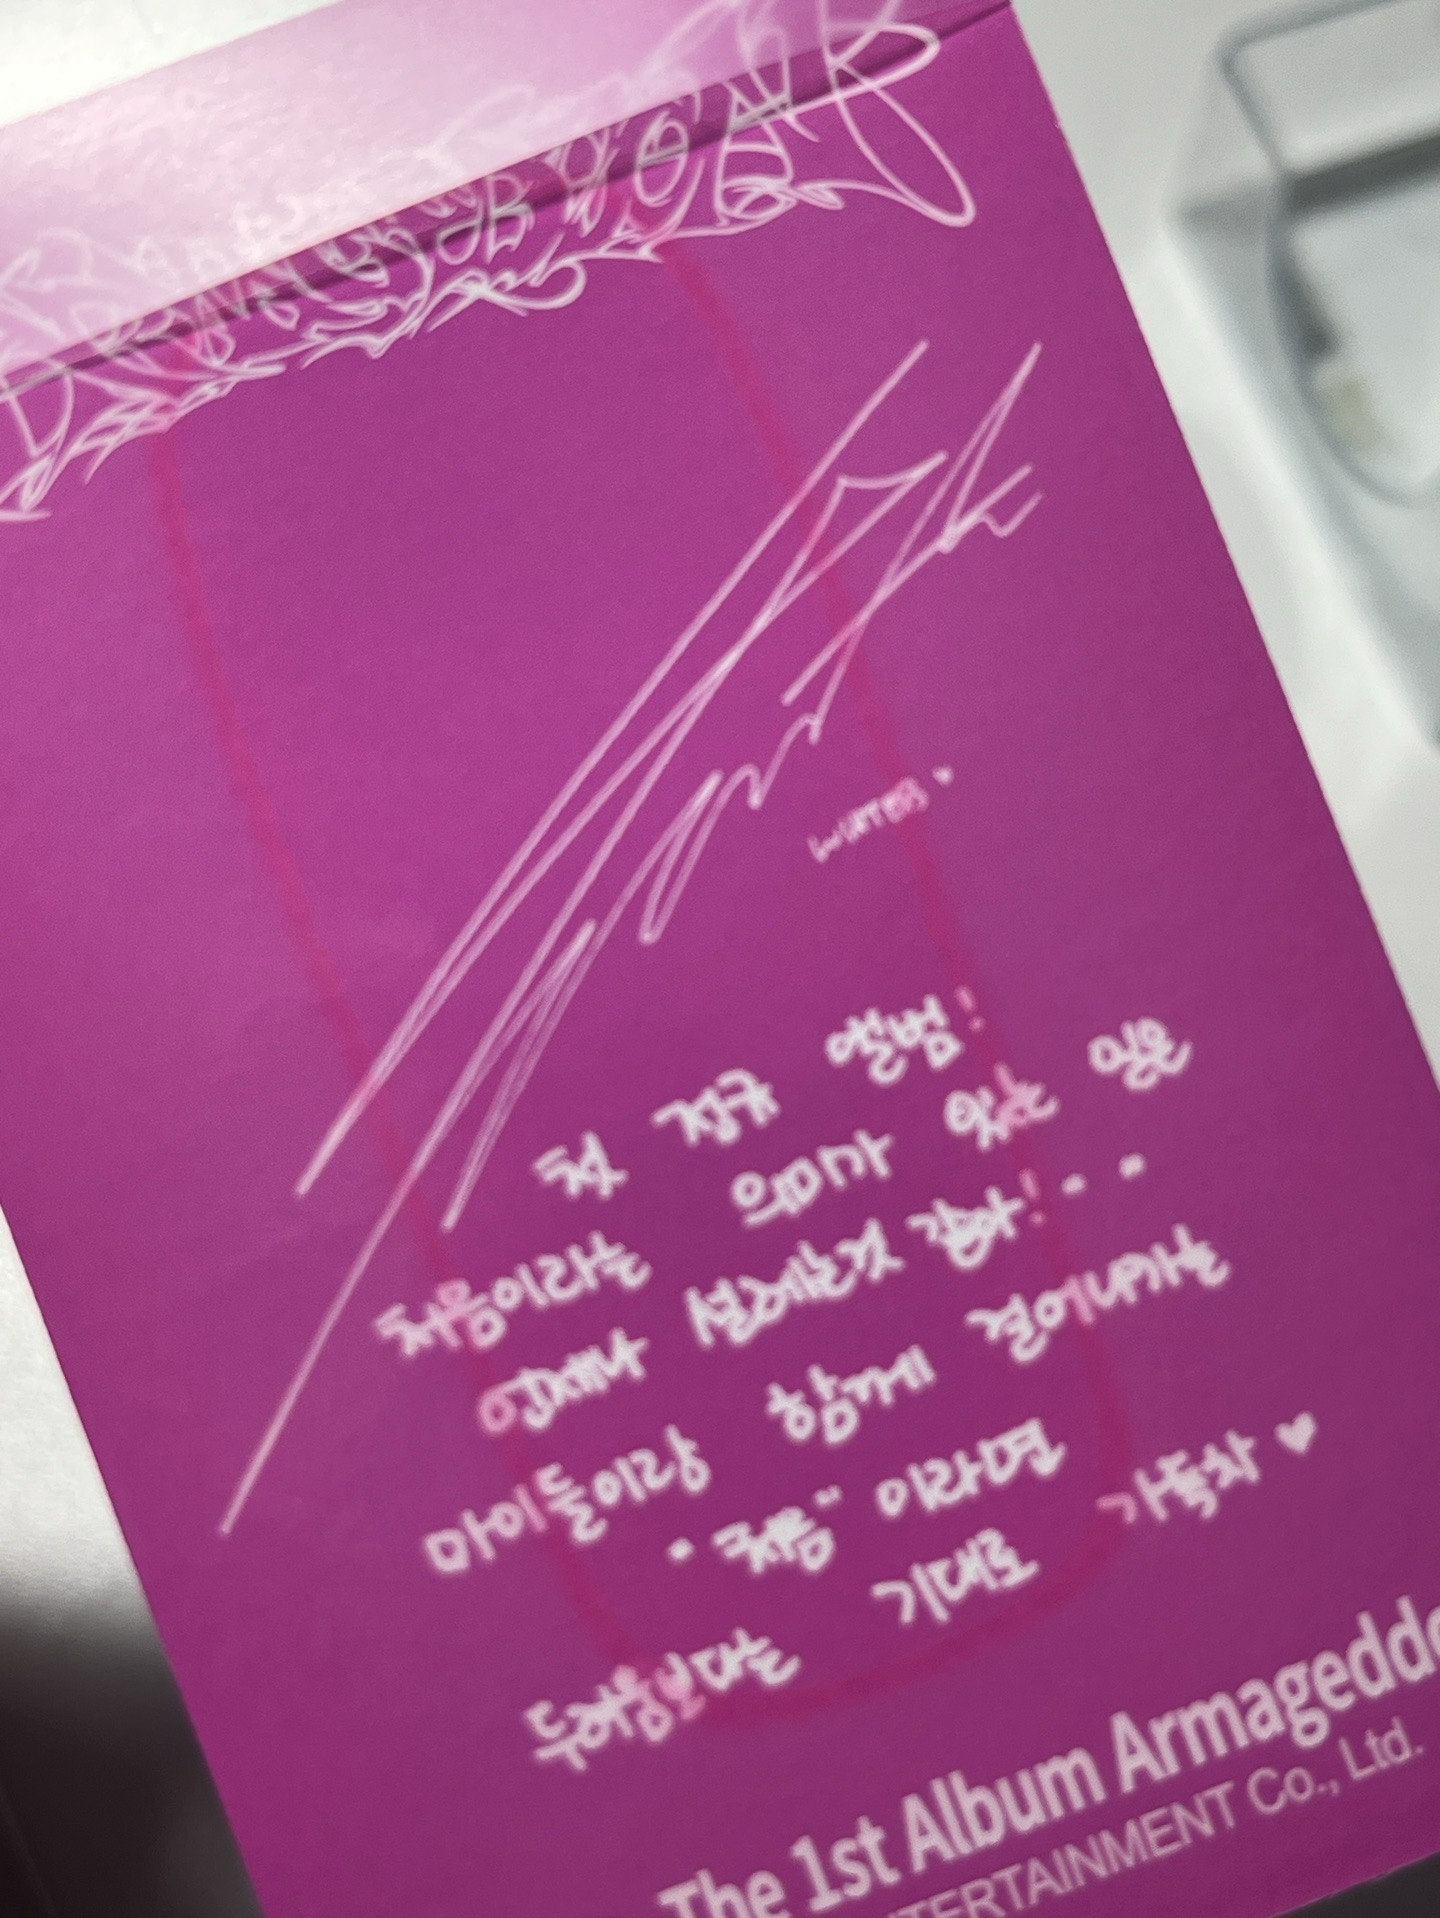 WINTER ♥
첫 정규 앨범!
처음이라는 의미가 있는 일은
언제나 설레는것 같아!--
마이들이랑 함께 걸어나가는
"처음" 이라면
두려움보다는 기대로 가득차 ♥
The 1st Album Armageddo
NTERTAINMENT Co., Ltd.